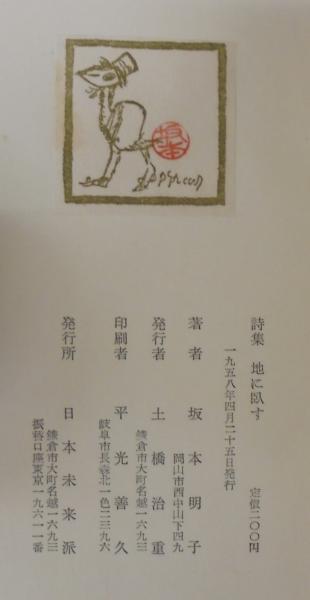 坂本
詩集 地に臥す 定価二〇〇円
一九五八年四月二十五日発行
著者 坂本明子
岡山市西中山下四九
発行者 土橋治重
鎌倉市大町名越一六九三
印刷者 平光善久
岐阜市長森北一色二三九六
発行所 日本未来派
鎌倉市大町名越一六九三
振替口座東京一九六一一番